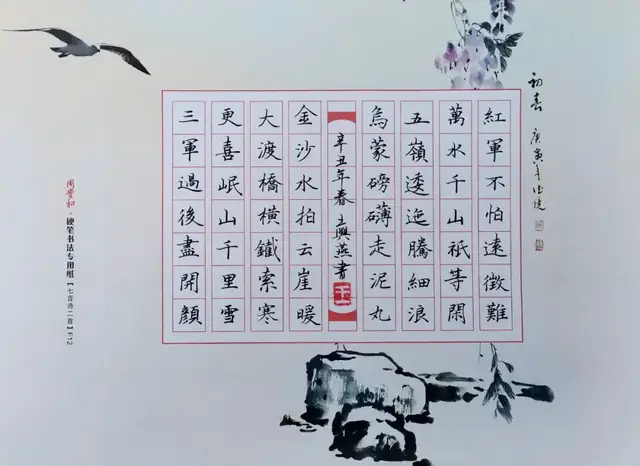 初春
庚寅年
紅軍不怕遠徵難
萬水千山祇等閑
五嶺逶迤騰細浪
烏蒙磅礴走泥丸
辛丑年春 王興燕書
王
金沙水拍云崖暖
大渡橋橫鐵索寒
更喜岷山千里雪
三軍過後盡開顏
硬笔书法专用纸【七言诗二首】F12